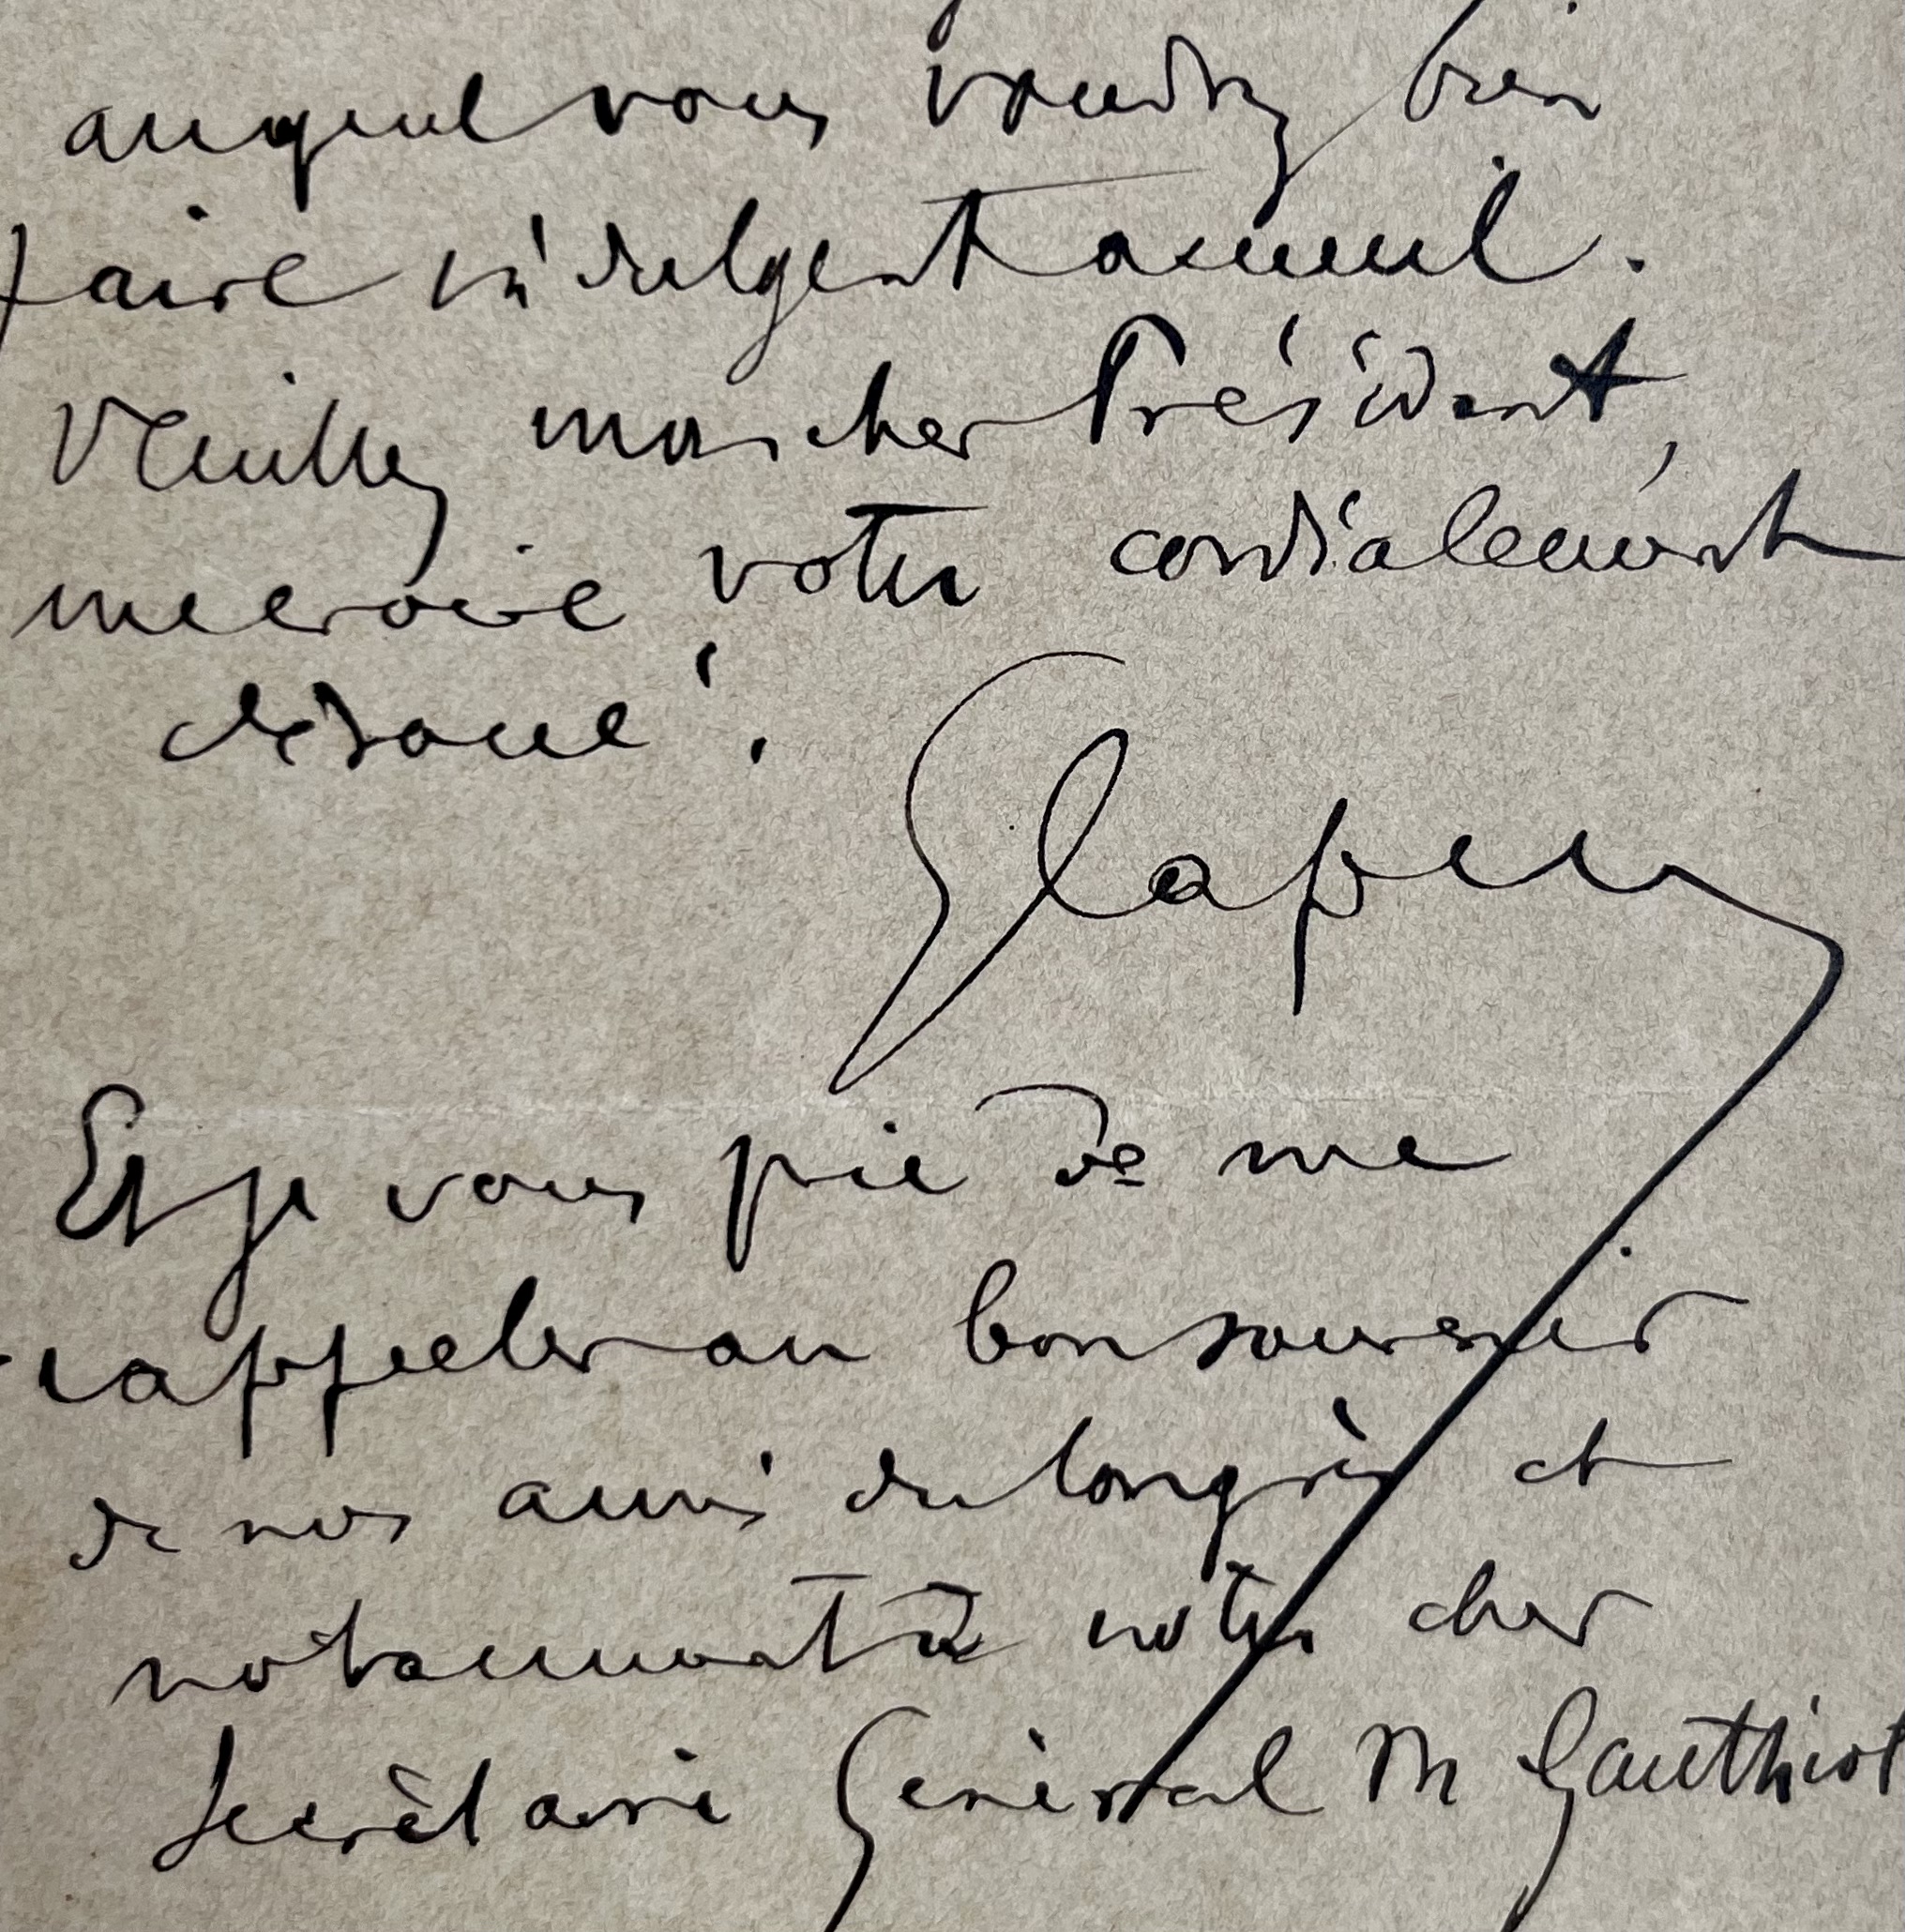 auquel vous voudrez bien
faire indulgent accueil.
Veuillez mon cher Président,
me croire votre cordialement
dévoué.
Et je vous prie de me
rappeler au bon souvenir
de nos amis du Congrès et
notamment à notre cher
Secrétaire Général M Gauthiot